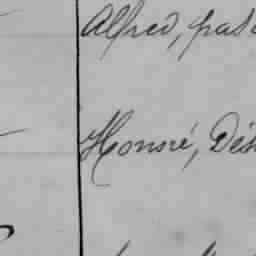 Alfred, pas
Honoré, Dés